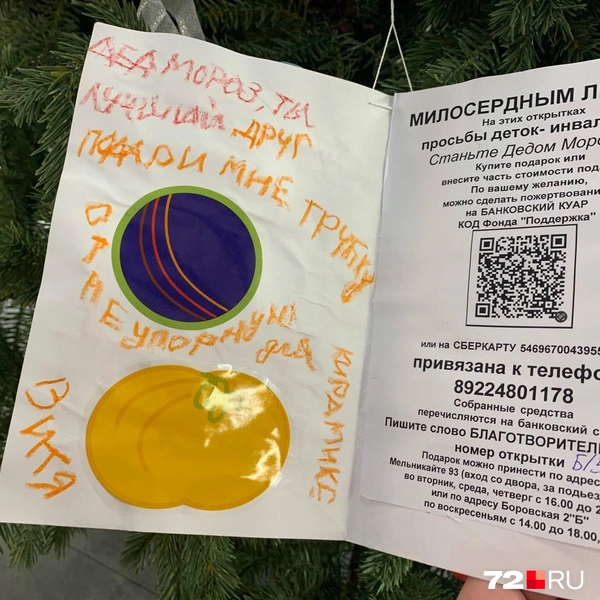 ДЕД МОРОЗ, ТЫ
ЛУЧШИЙ ДРУГ
ПОДАРИ МНЕ
ГРУБКУ
ОТ
НЕУПОРНУЮ
для
КИРАМИКЕ
ВИТЯ
МИЛОСЕРДНЫМ Л
На этих открытках
просьбы деток- инвал
Станьте Дедом Моро
Купите подарок или
внесите часть стоимости пода
По вашему желанию,
можно сделать пожертвовани
на БАНКОВСКИЙ КУАР
КОД Фонда "Поддержка"
или на СБЕРКАРТУ 546967004395
привязана к телефо
89224801178
Собранные средства
перечисляются на банковский с
Пишите слово БЛАГОТВОРИТЕЛЬ
номер открытки Б/
Подарок можно принести по адрес
Мельникайте 93 (вход со двора, за подъез
во вторник, среда, четверг с 16.00 до 2
или по адресу Боровская 2"Б"
по воскресеньям с 14.00 до 18.00,
72.RU